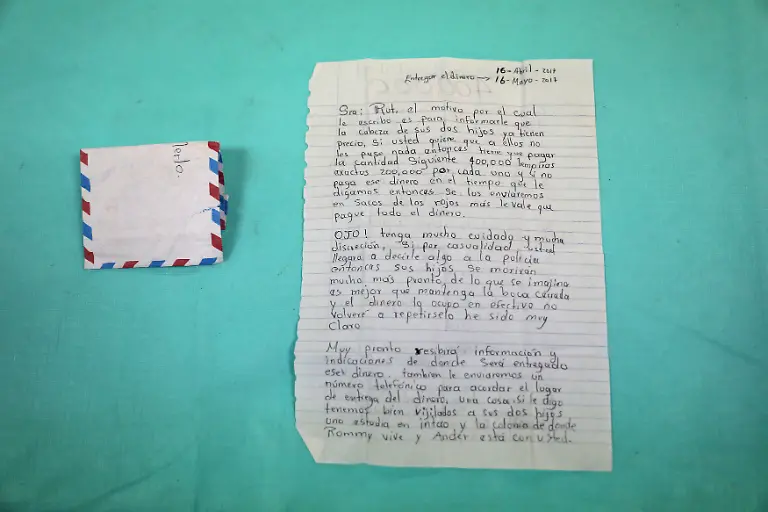 Entregar el dinero → 16-Abril-2017
16-Mayo-2017
Sra: Rut. el motivo por el cual
le escribo es para informarle que
la cabeza de sus dos hijos ya tienen
precio, Si usted quiere que a ellos no
les pase nada entonces tiene que pagar
la cantidad Siguiente 400,000 lempiras
exactos 200,000 por cada uno y si no
paga ese dinero en el tiempo que le
digamos entonces Se los enviaremos
en Sacos de los rojos más le vale que
pague todo el dinero.
OJO! tenga mucho cuidado y mucha
discreción, Si por casualidad usted
llegara a decirle algo a la policía
entonces sus hijos Se morirán
mucho más pronto de lo que se imagina
es mejor que mantenga la boca cerrada
y el dinero lo ocupo en efectivo no
volveré a repetirselo he sido muy
Claro
Muy pronto resibirá información y
indicaciones de donde Será entregado
ese dinero. tambien le enviaremos un
número telefónico para acordar el lugar
de entrega del dinero, una cosa si le digo
tenemos bien vijilados a sus dos hijos
uno estudia en y la colonia de donde
Rommy vive y Ander está con usted.